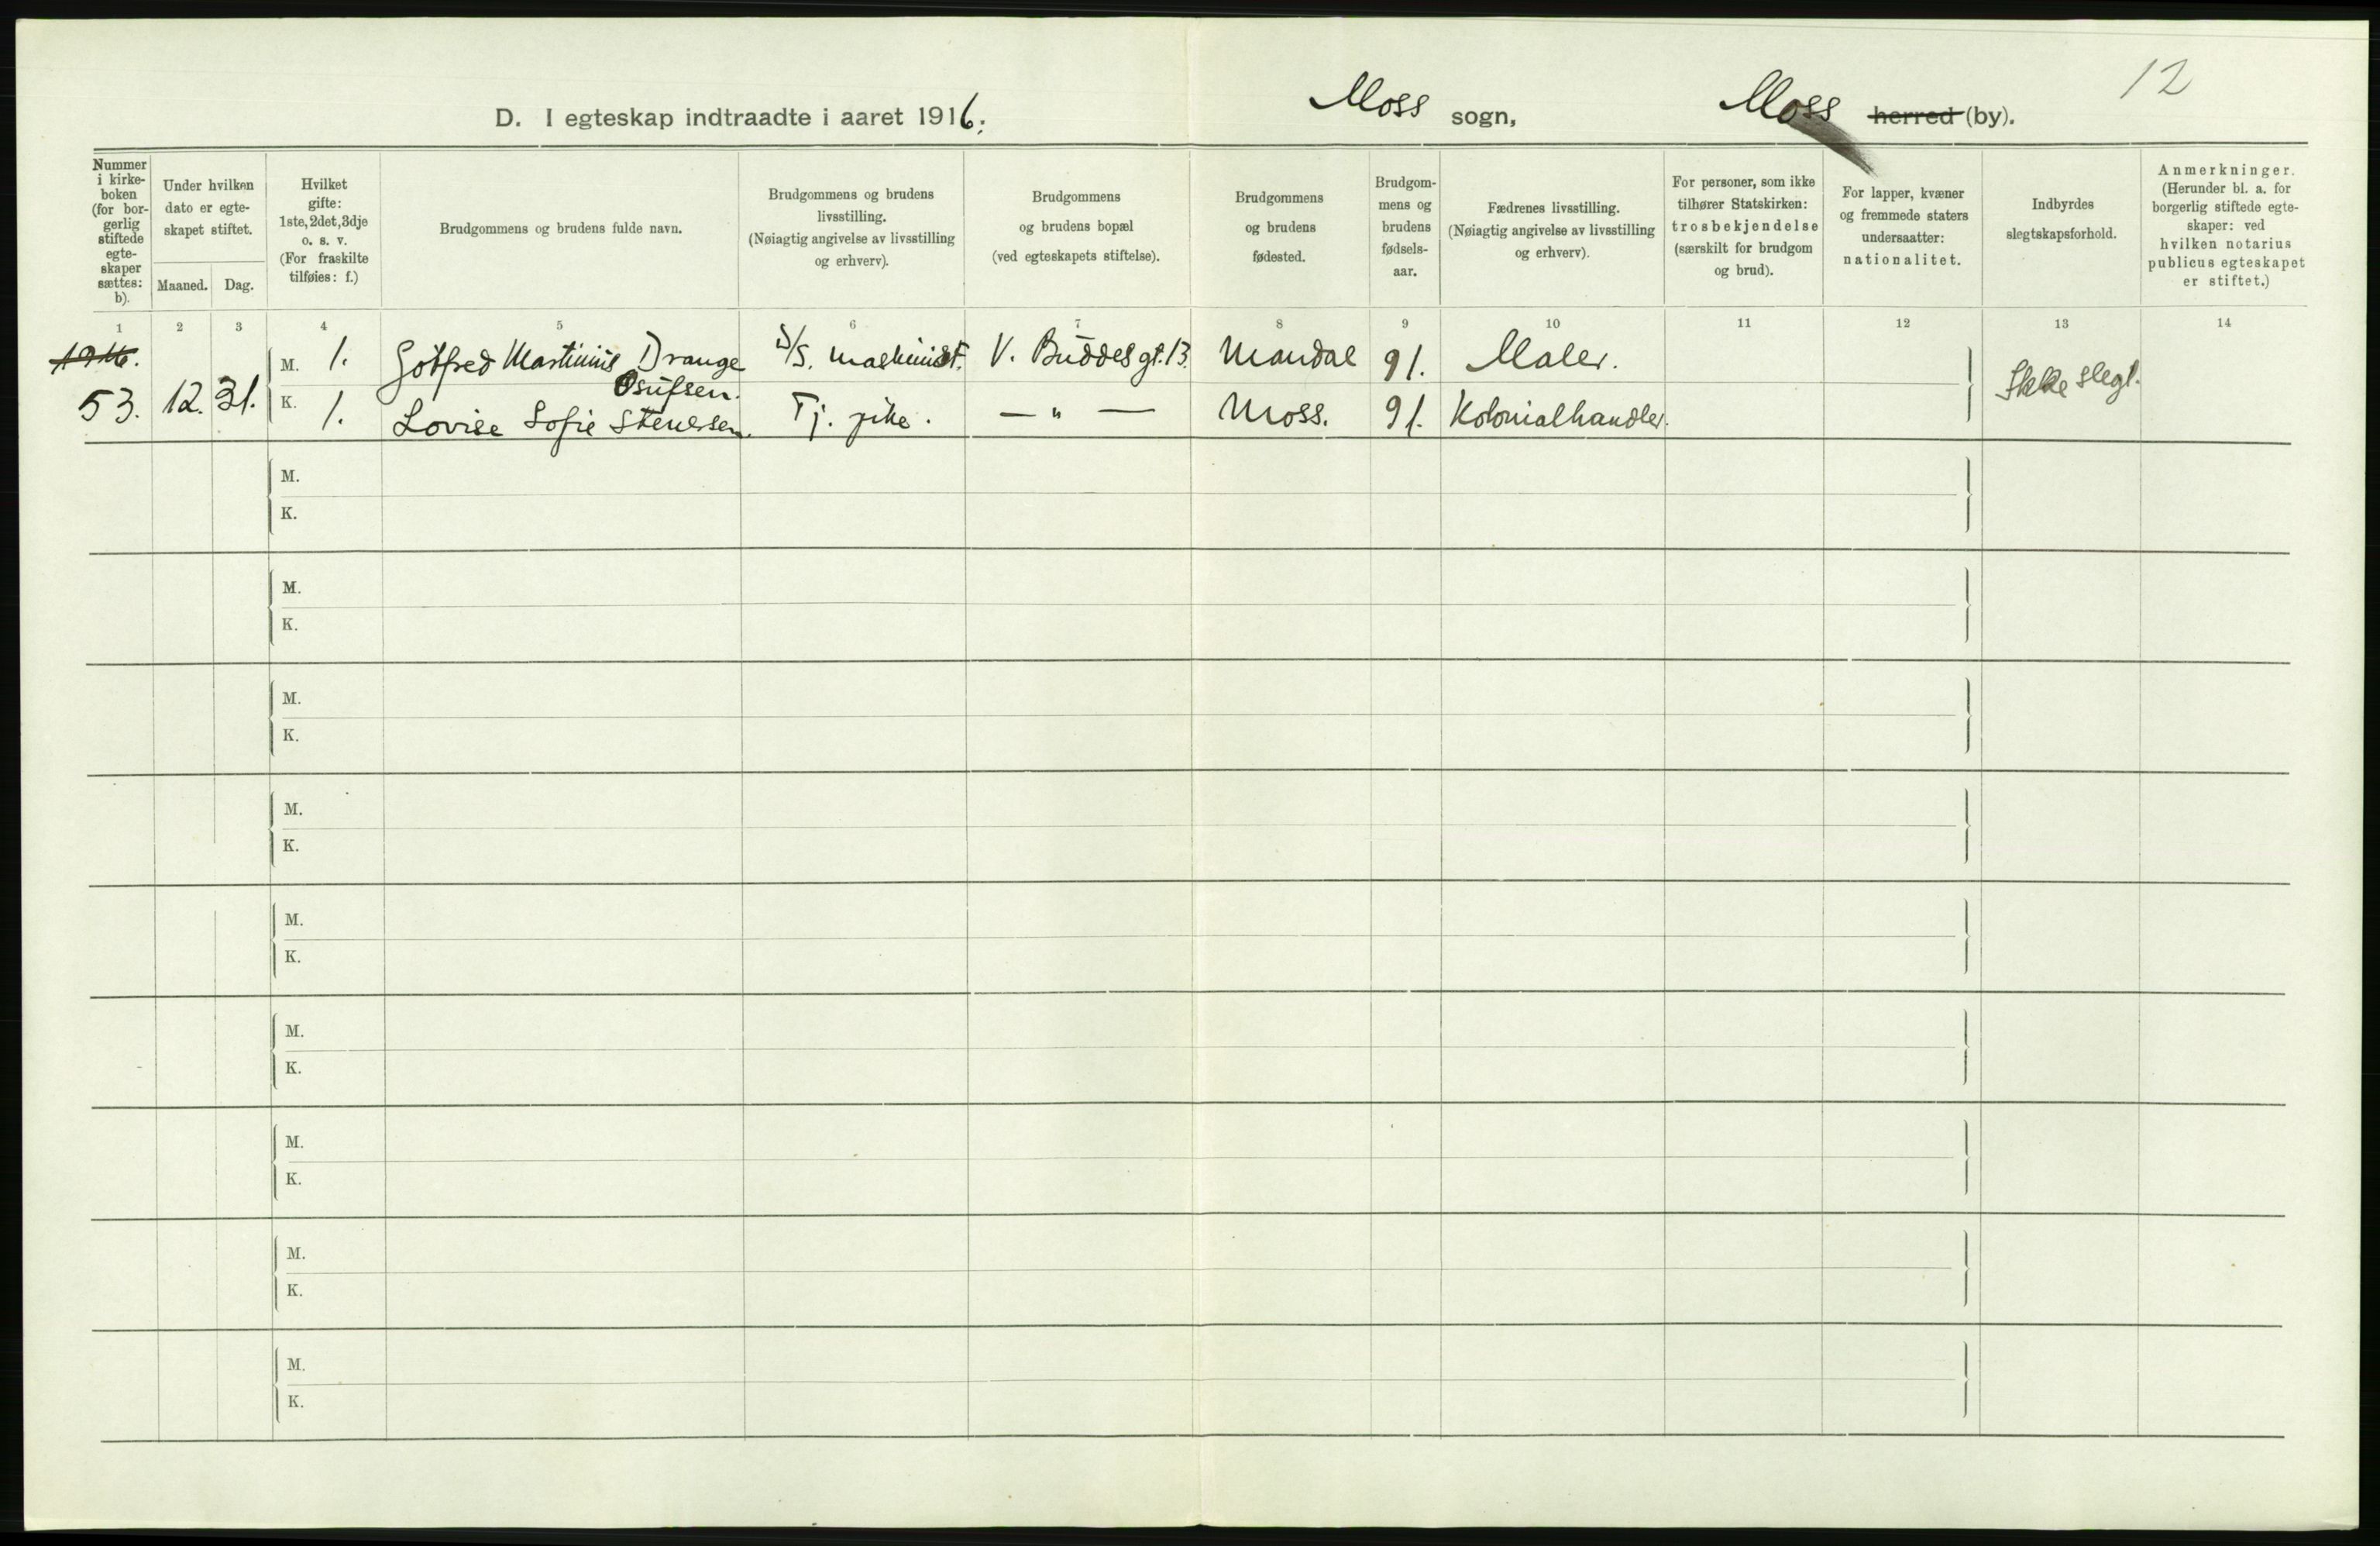 12
D. I egteskap indtraadte i aaret 1916.
Moss sogn,
Moss herred (by).
Nummer i kirkeboken (for borgerlig stiftede egteskaper sættes: b).
Under hvilken dato er egteskapet stiftet.
Maaned. Dag.
Hvilket gifte: 1ste, 2det, 3dje o. s. v. (For fraskilte tilføies: f.)
Brudgommens og brudens fulde navn.
Brudgommens og brudens livsstilling. (Nøiagtig angivelse av livsstilling og erhverv).
Brudgommens og brudens bopæl (ved egteskapets stiftelse).
Brudgommens og brudens fødested.
Brudgommens og brudens fødselsaar.
Fædrenes livsstilling. (Nøiagtig angivelse av livsstilling og erhverv).
For personer, som ikke tilhører Statskirken: trosbekjendelse (særskilt for brudgom og brud).
For lapper, kvæner og fremmede staters undersaatter: nationalitet.
Indbyrdes slegtskapsforhold.
Anmerkninger. (Herunder bl. a. for borgerlig stiftede egteskaper: ved hvilken notarius publicus egteskapet er stiftet.)
1 2 3 4 5 6 7 8 9 10 11 12 13 14
1916.
M. 1. Gotfred Martinius Drange D/S. maskinist. V. Buddesgt. 13. Mandal 91. Maler.
Osufsen.
53. 12. 31. K. 1. Lovise Sofie Stenersen. Tj. pike. — " — Moss. 91. Kolonialhandler. Ikke slegt.
M.
K.
M.
K.
M.
K.
M.
K.
M.
K.
M.
K.
M.
K.
M.
K.
M.
K.